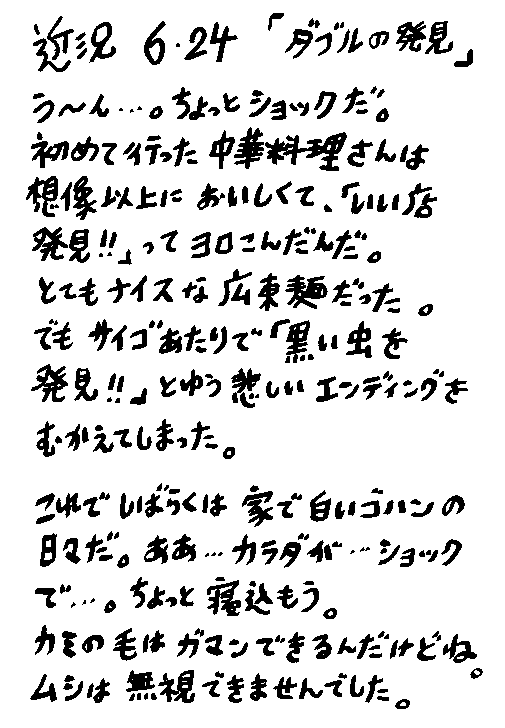 近況 6・24 「ダブルの発見」
う〜ん…。ちょっとショックだ。
初めて行った中華料理さんは
想像以上においしくて、「いい店
発見!!」ってヨロこんだんだ。
とてもナイスな広東麺だった。
でもサイゴあたりで「黒い虫を
発見!!」とゆう悲しいエンディングを
むかえてしまった。
これでしばらくは家で白いゴハンの
日々だ。ああ…カラダが…ショック
で…。ちょっと寝込もう。
カミの毛はガマンできるんだけどね。
ムシは無視できませんでした。